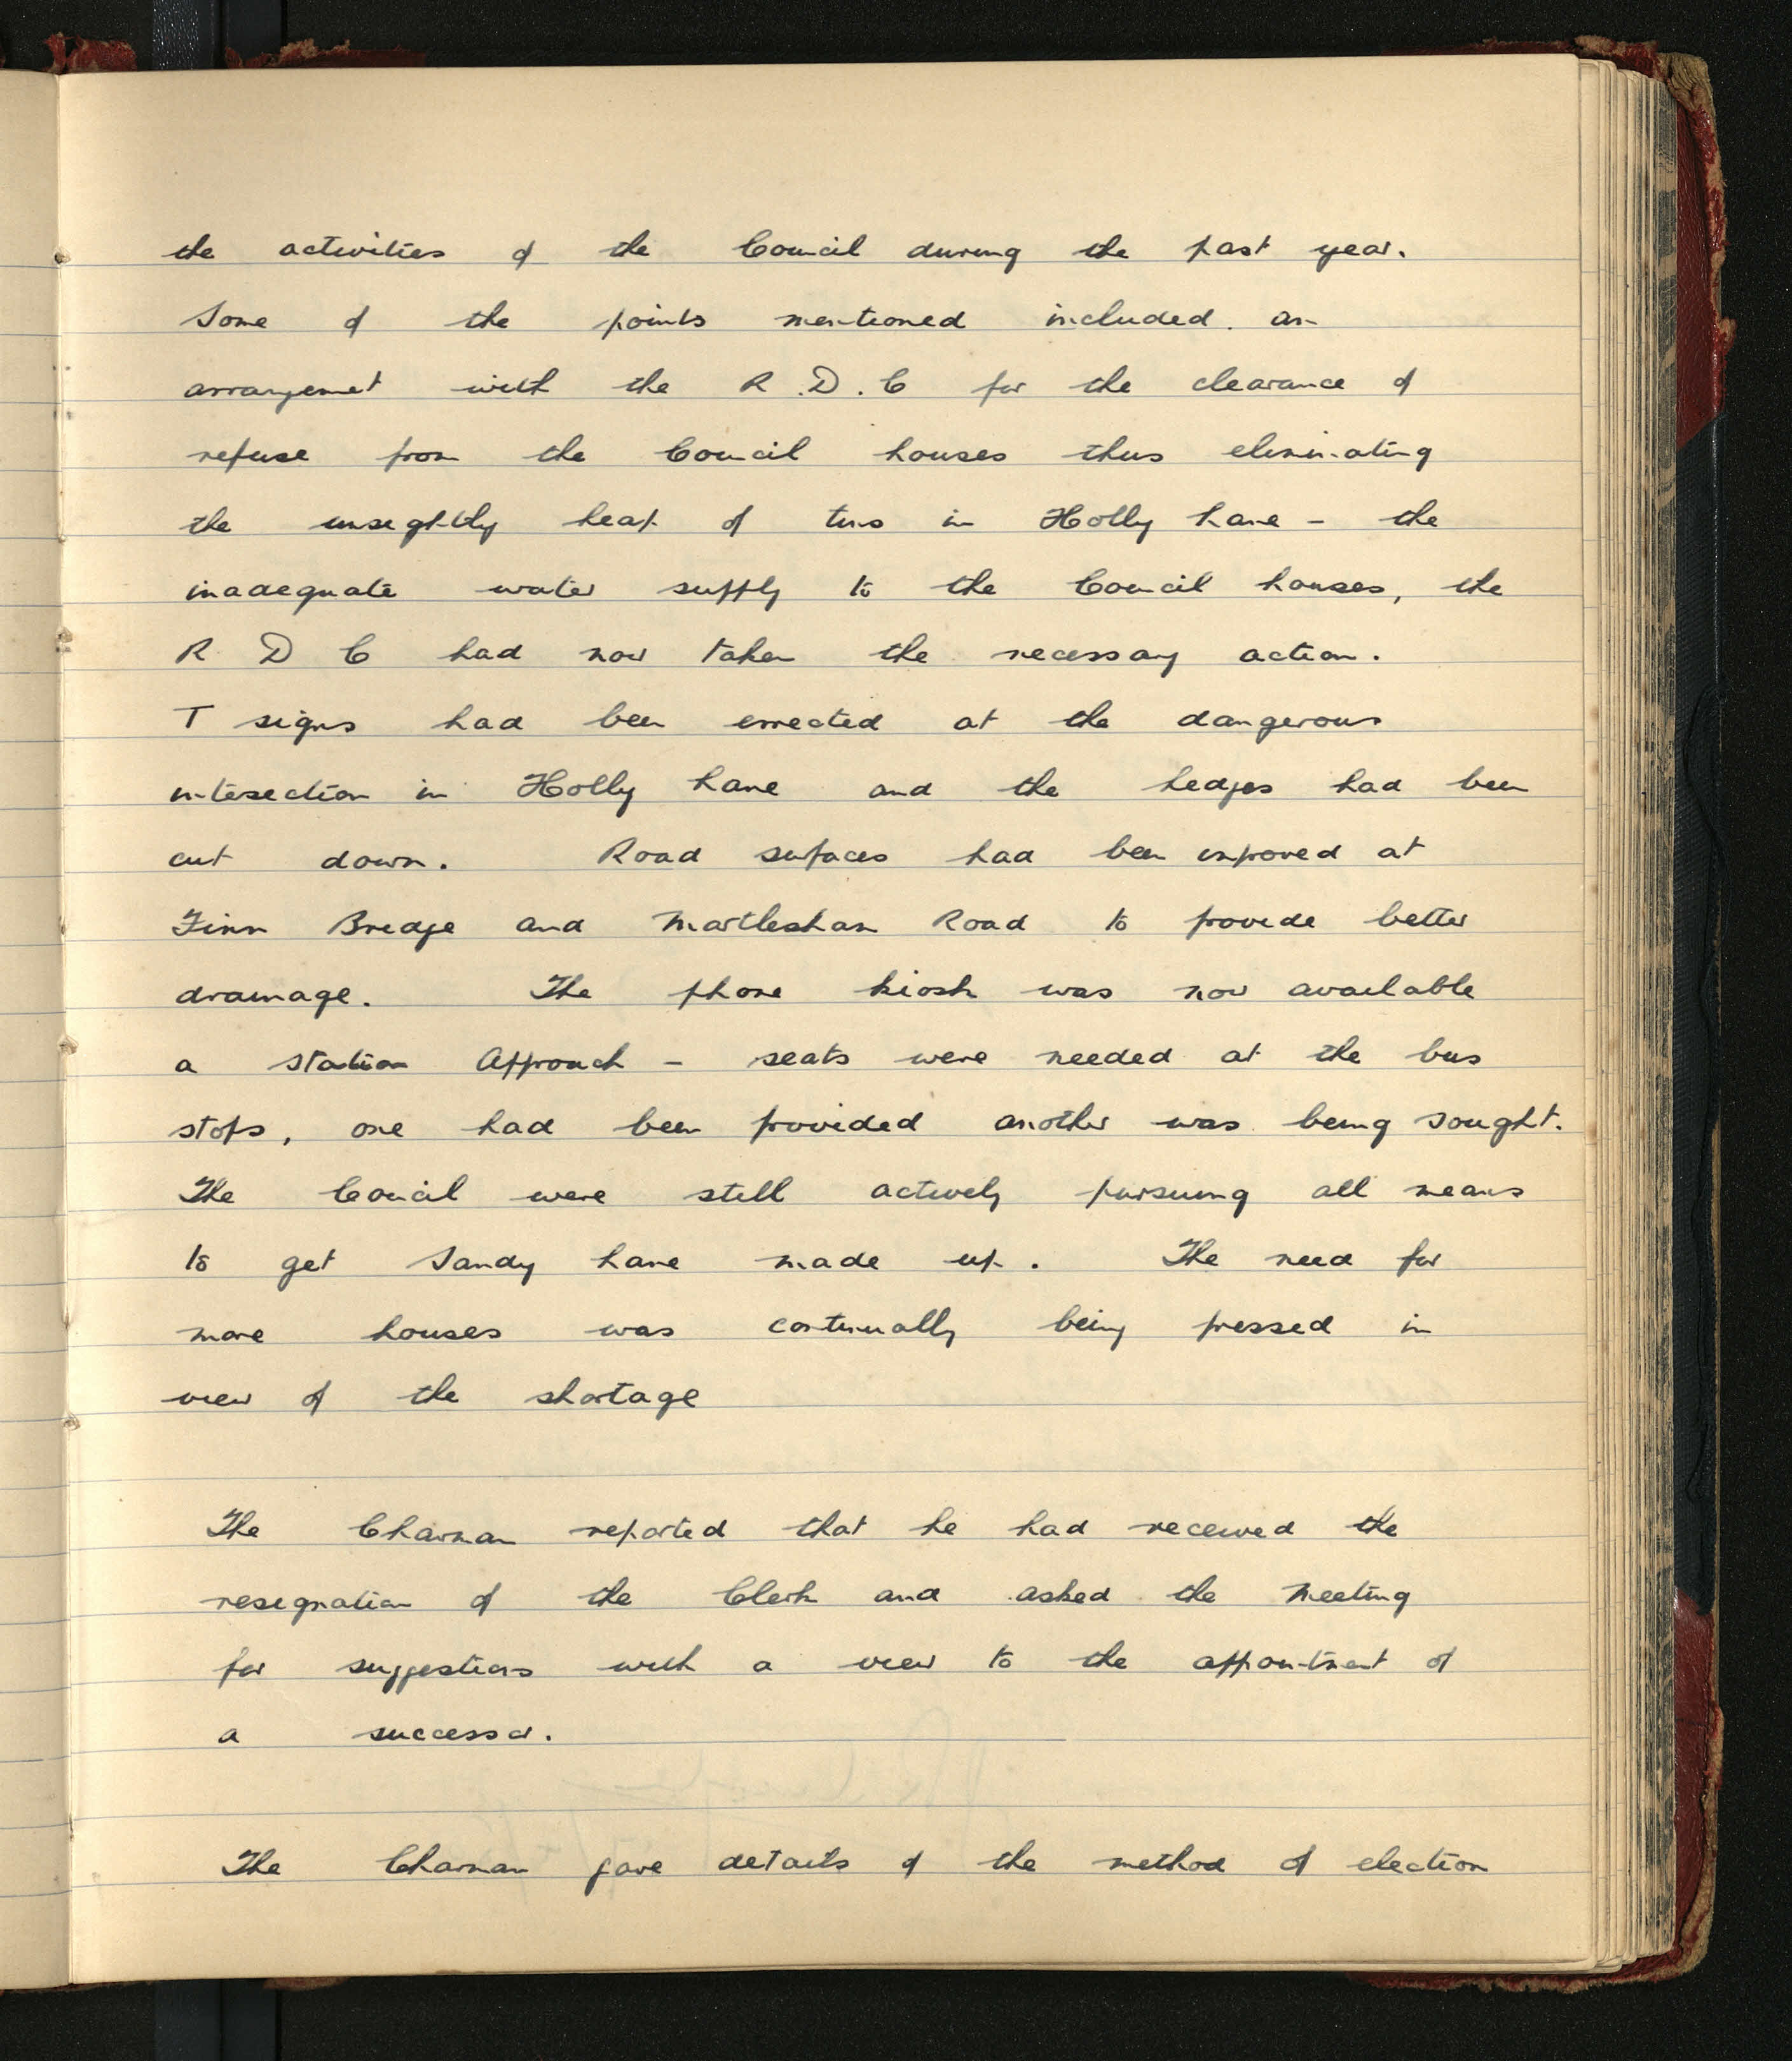 the activities of the Council during the past year.
Some of the points mentioned included an
arrangemet with the R.D.C for the clearance of
refuse from the Council houses thus eliminating
the unsightly heap of tins in Holly Lane - the
inadequate water supply to the Council houses, the
R D C had now taken the necessary action.
T signs had been errected at the dangerous
intersection in Holly Lane and the hedges had been
cut down. Road surfaces had been improved at
Finn Bridge and Martlesham Road to provide better
drainage. The phone kiosk was now available
a Station Approach - seats were needed at the bus
stops, one had been provided another was being sought.
The Council were still actively pursuing all means
to get Sandy Lane made up. The need for
more houses was continually being pressed in
view of the shortage
The Chairman reported that he had received the
resignation of the Clerk and asked the Meeting
for suggestions with a view to the appointment of
a successor.
The Chairman gave details of the method of election